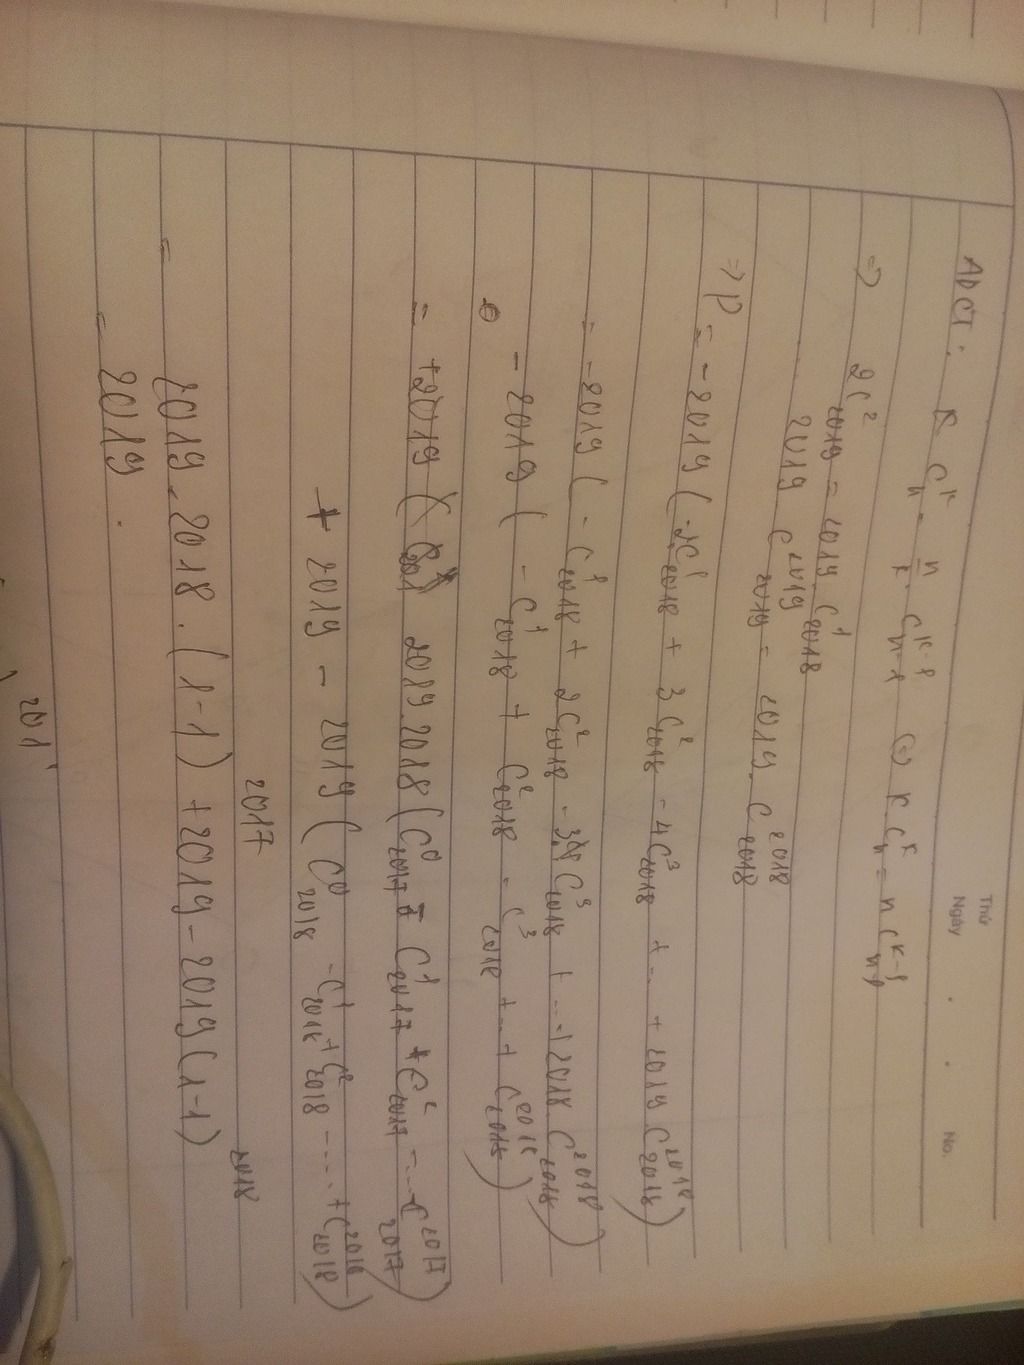 Thứ
Ngày . . No.
ADCT: k C_n^k = \frac{n}{k} . C_{n-1}^{k-1} ⇔ k C_n^k = n C_{n-1}^{k-1}
=> 2C_{2019}^2 = 2019 C_{2018}^1
2019 C_{2019}^{2019} = 2019 . C_{2018}^{2018}
=> P = -2019 (-2C_{2018}^1 + 3C_{2018}^2 - 4C_{2018}^3 + ... + 2019 C_{2018}^{2018})
= -2019 ( - C_{2018}^1 + 2C_{2018}^2 - 3C_{2018}^3 + ... + 2018 C_{2018}^{2018})
- 2019 ( - C_{2018}^1 + C_{2018}^2 - C_{2018}^3 + ... + C_{2018}^{2018})
= +2019 2019.2018 (C_{2017}^0 - C_{2017}^1 + C_{2017}^2 - ... C_{2017}^{2017})
+ 2019 - 2019 ( C_{2018}^0 - C_{2018}^1 + C_{2018}^2 ..... + C_{2018}^{2018})
= 2019.2018 . (1-1)^{2017} + 2019 - 2019 (1-1)^{2018}
= 2019 .
201